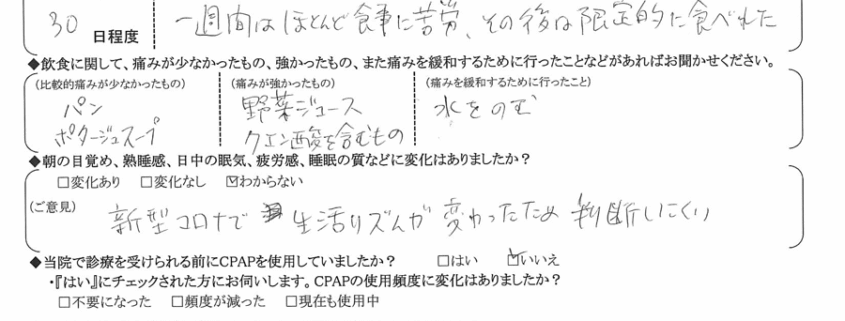 30 日程度 一週間はほとんど食事に苦労、その後は限定的に食べれた
◆飲食に関して、痛みが少なかったもの、強かったもの、また痛みを緩和するために行ったことなどがあればお聞かせください。
(比較的痛みが少なかったもの) (痛みが強かったもの) (痛みを緩和するために行ったこと)
パン 野菜ジュース 水をのむ
ポタージュスープ クエン酸を含むもの
◆朝の目覚め、熟睡感、日中の眠気、疲労感、睡眠の質などに変化はありましたか?
□変化あり □変化なし ☑わからない
(ご意見) 新型コロナで 生活リズムが変わったため判断しにくい
◆当院で診療を受けられる前にCPAPを使用していましたか? □はい ☑いいえ
・『はい』にチェックされた方にお伺いします。CPAPの使用頻度に変化はありましたか?
□不要になった □頻度が減った □現在も使用中